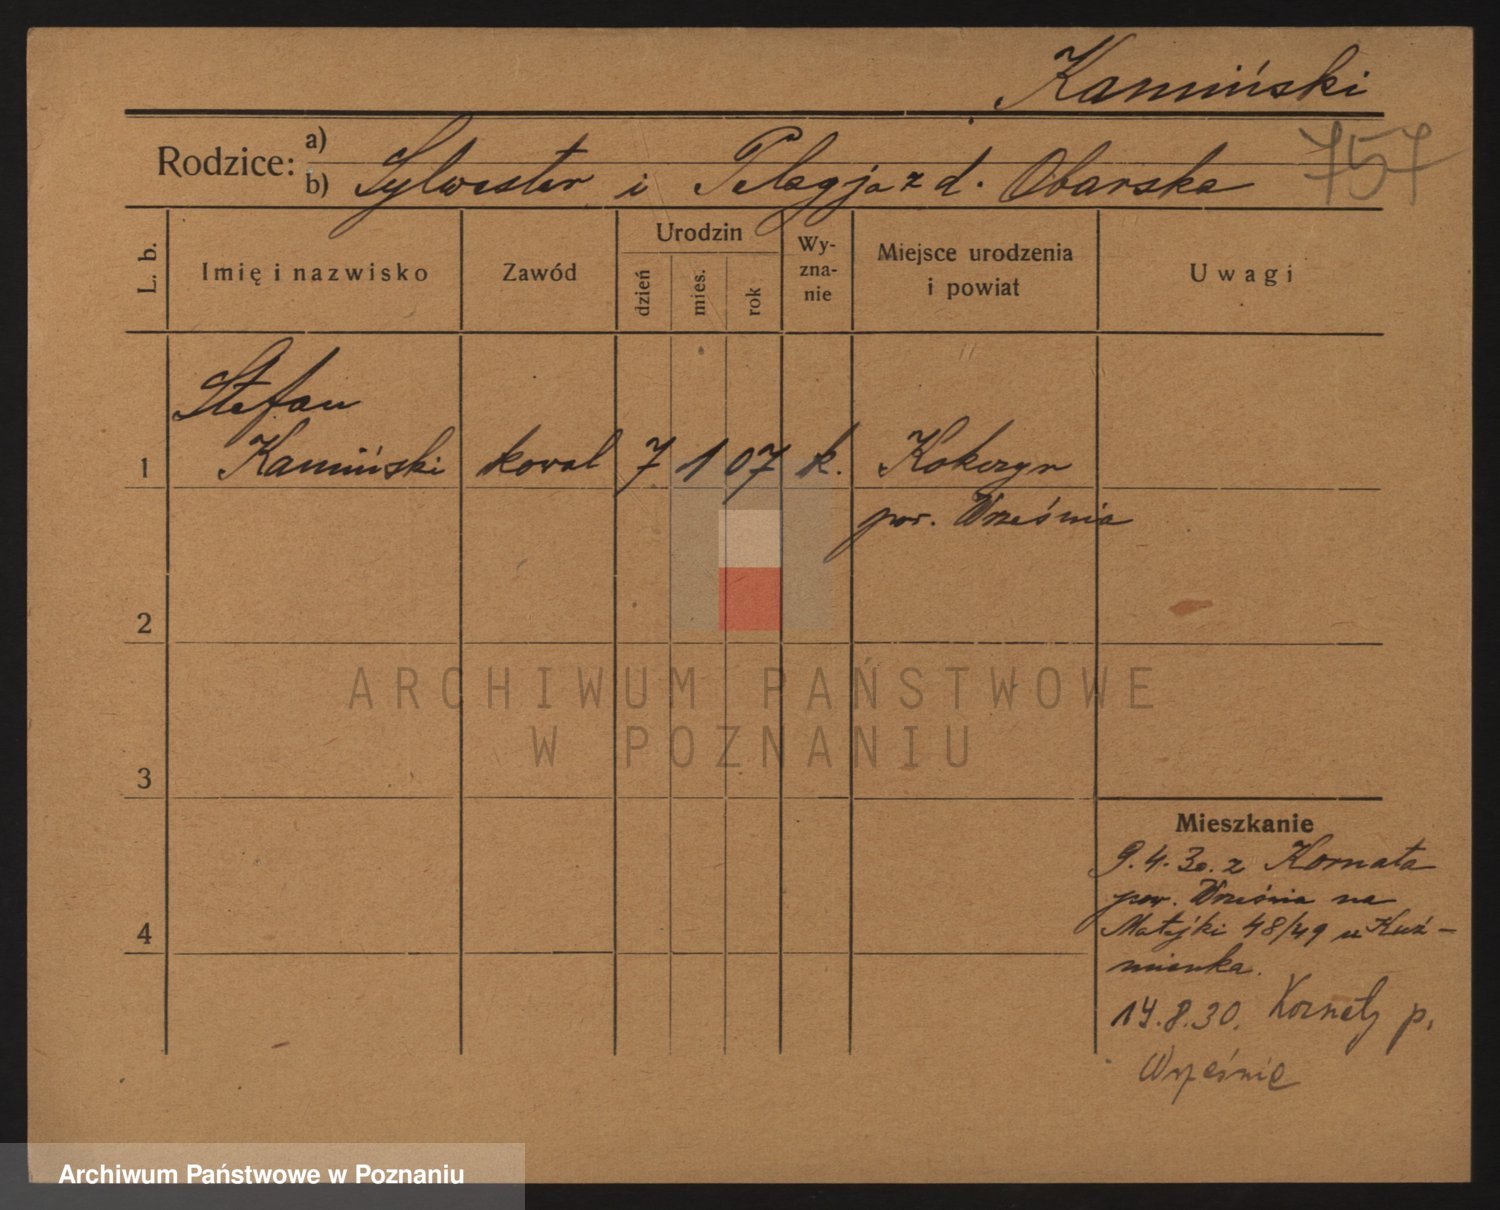 Kamiński
757
Rodzice:
a)
b) Sylwester i Pelagja z d. Obarska
L. b.
Imię i nazwisko
Zawód
Urodzin
dzień
mies.
rok
Wy-
zna-
nie
Miejsce urodzenia
i powiat
Uwagi
Stefan
1 Kamiński koval 7 1 07 k. Kokczyn
pow. Września
2
3
4
Mieszkanie
9.4.30. z Kornata
pow. Września na
Matejki 48/49 u Kuź-
mianka.
14.8.30. Kornaty p.
Września
ARCHIWUM PAŃSTWOWE
W POZNANIU
Archiwum Państwowe w Poznaniu